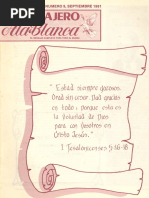 NUMERO 9, SEPTIEMBRE 1987
AJERO
Alta Blanca
"Estad siempre gozosos.
Orad sin cesar. Dad gracias
en todo; porque esta es
la voluntad de Dios
para con vosotros en
Cristo Jesús."
I Tesalonicenses 5:16-18